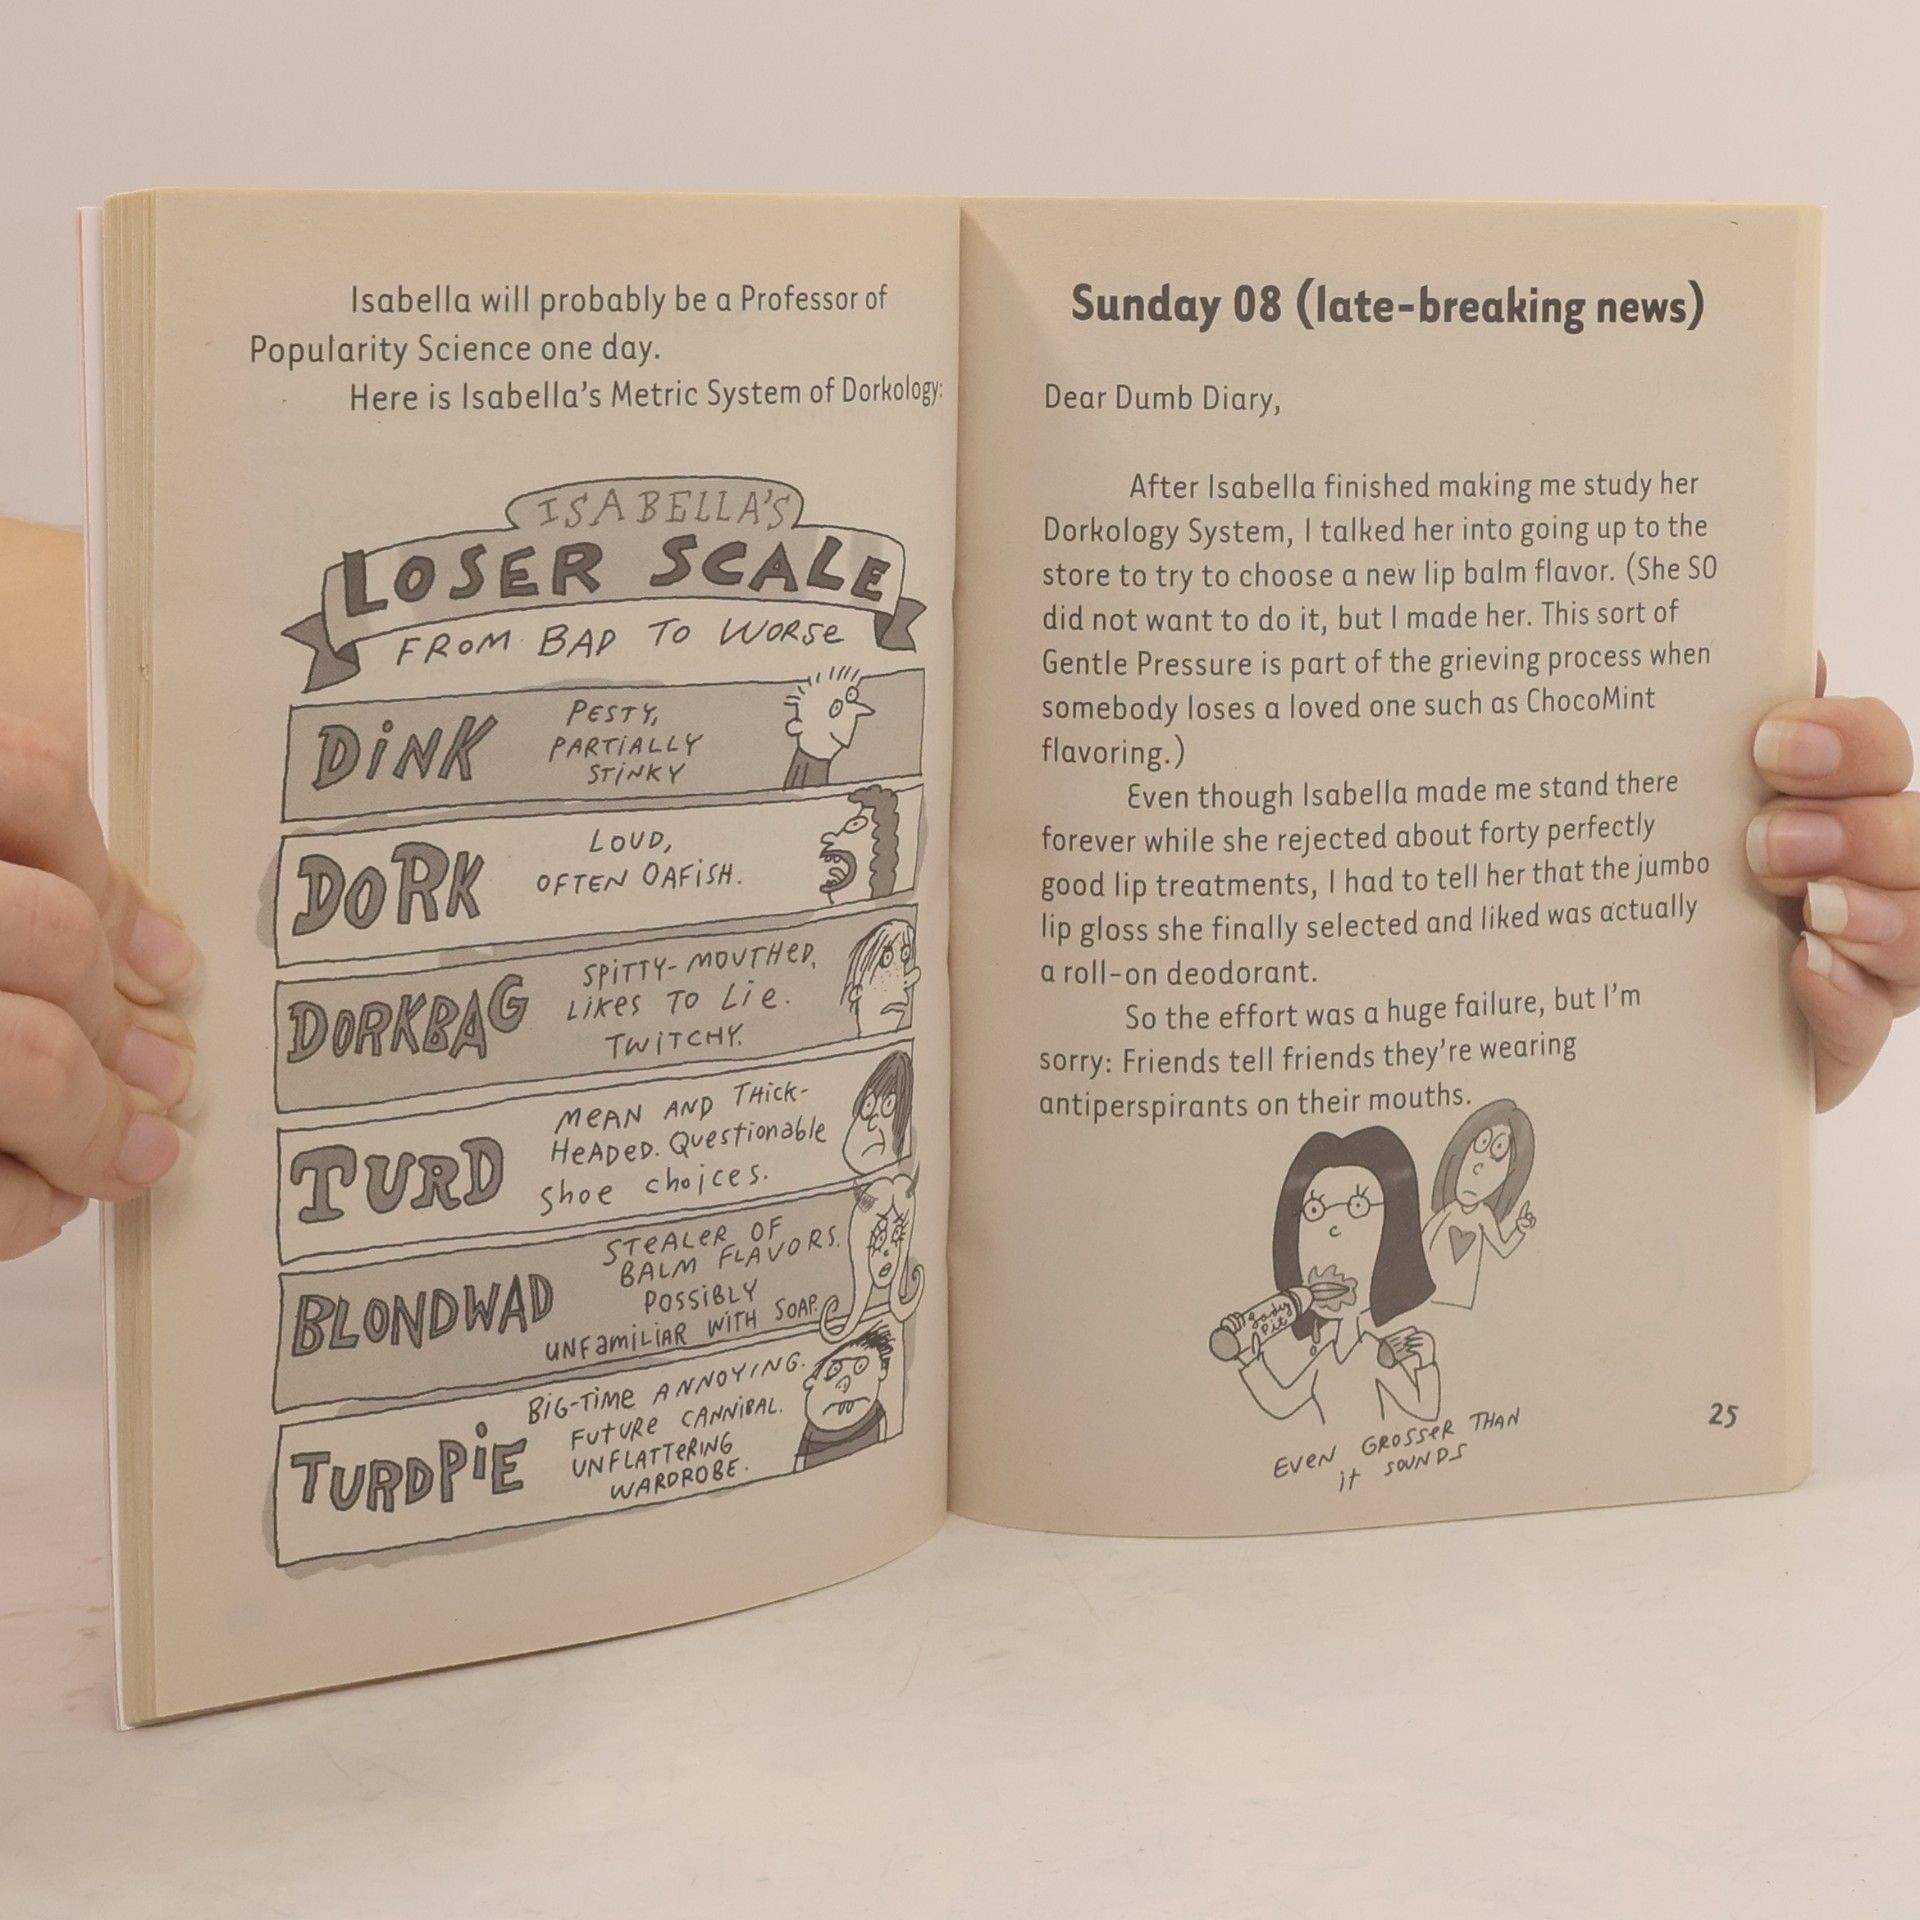 Isabella will probably be a Professor of
Popularity Science one day.
Here is Isabella's Metric System of Dorkology:
ISABELLA'S
LOSER SCALE
FROM BAD TO WORSE
DINK
PESTY,
PARTIALLY
STINKY
DORK
LOUD,
OFTEN OAFISH.
DORKBAG
SPITTY-MOUTHED.
LIKES TO LIE.
TWITCHY.
TURD
MEAN AND THICK-
HEADED. QUESTIONABLE
SHOE CHOICES.
BLONDWAD
STEALER OF
BALM FLAVORS.
POSSIBLY
UNFAMILIAR WITH SOAP.
TURDPIE
BIG-TIME ANNOYING.
FUTURE CANNIBAL.
UNFLATTERING
WARDROBE.
Sunday 08 (late-breaking news)
Dear Dumb Diary,
After Isabella finished making me study her
Dorkology System, I talked her into going up to the
store to try to choose a new lip balm flavor. (She SO
did not want to do it, but I made her. This sort of
Gentle Pressure is part of the grieving process when
somebody loses a loved one such as ChocoMint
flavoring.)
Even though Isabella made me stand there
forever while she rejected about forty perfectly
good lip treatments, I had to tell her that the jumbo
lip gloss she finally selected and liked was actually
a roll-on deodorant.
So the effort was a huge failure, but I'm
sorry: Friends tell friends they're wearing
antiperspirants on their mouths.
Lady
Pit
EVEN GROSSER THAN
it SOUNDS
25